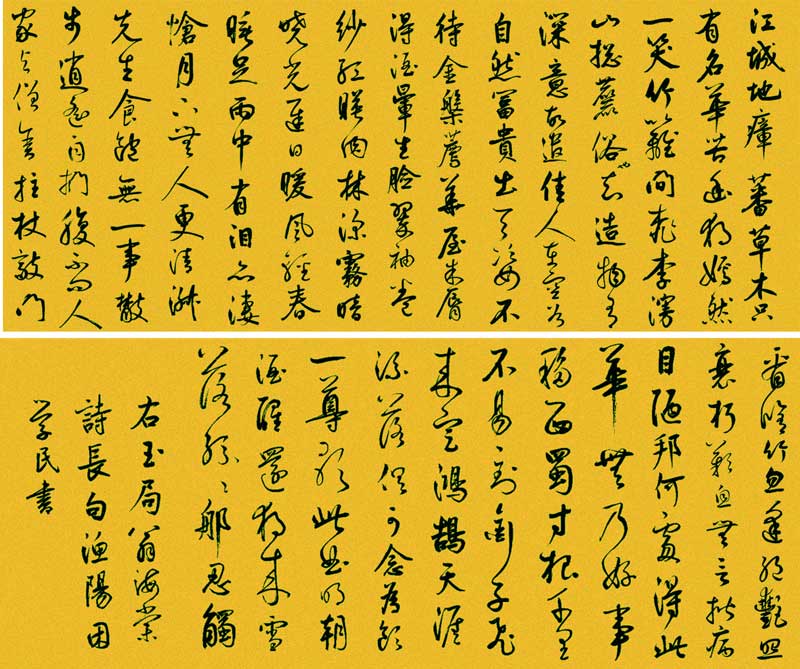 江城地瘴蕃草木只
有名華苦幽獨嫣然
一笑竹籬間桃李漫
山揔麄俗也知造物有
深意故遣佳人在空谷
自然富貴出天姿不
待金槃薦華屋朱脣
得酒暈生臉翠袖卷
紗紅暎肉林深霧暗
曉光遲日暖風輕春
睡足雨中有泪亦淒
愴月下無人更清淑
先生食飽無一事散
步逍遙自捫腹不問人
家與僧舍拄杖敲門
看脩竹忽逢絕艷照
衰朽歎息無言揩病
目陋邦何處得此
華無乃好事
移西蜀寸根千里
不易到銜子飛
來定鴻鵠天涯
流落俱可念為飲
一尊歌此曲明朝
酒醒還獨來雪
落紛〻那忍觸
右玉局翁海棠
詩長句漁陽困
学民書